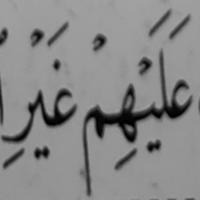 عَلَيْهِمْ غَيْرِ